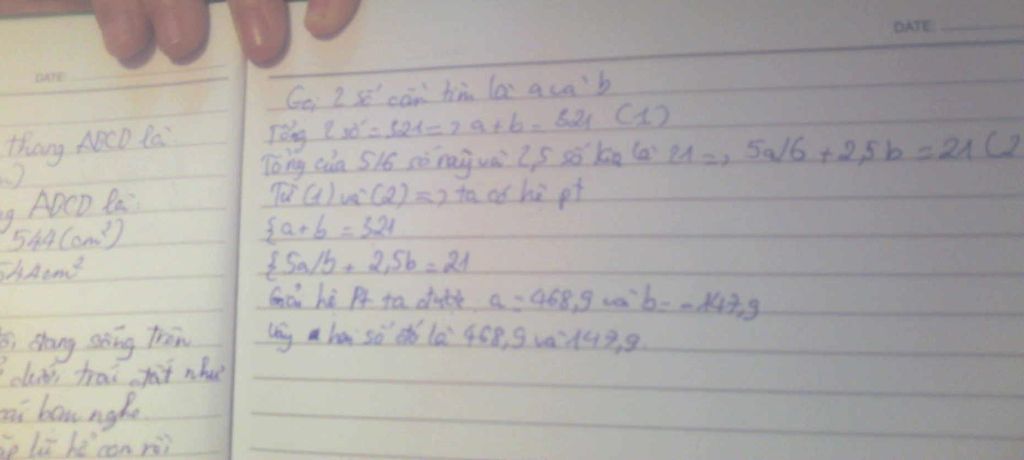 DATE:
thang ABCD là:
ABCD là:
544(cm²)
544cm²
đang sống trên
dưới trái đất như
bạn nghe
DATE:
Gọi 2 số cần tìm là a và b
Tổng 2 số = 321 => a + b = 321 (1)
Tổng của 5/6 số này và 2,5 số kia là 21 => 5a/6 + 2,5b = 21 (2
Từ (1) và (2) => ta có hệ pt
{a + b = 321
{5a/6 + 2,5b = 21
Giải hệ Pt ta được a = 468,9 và b = -147,9
Vậy hai số đó là 468,9 và 147,9.